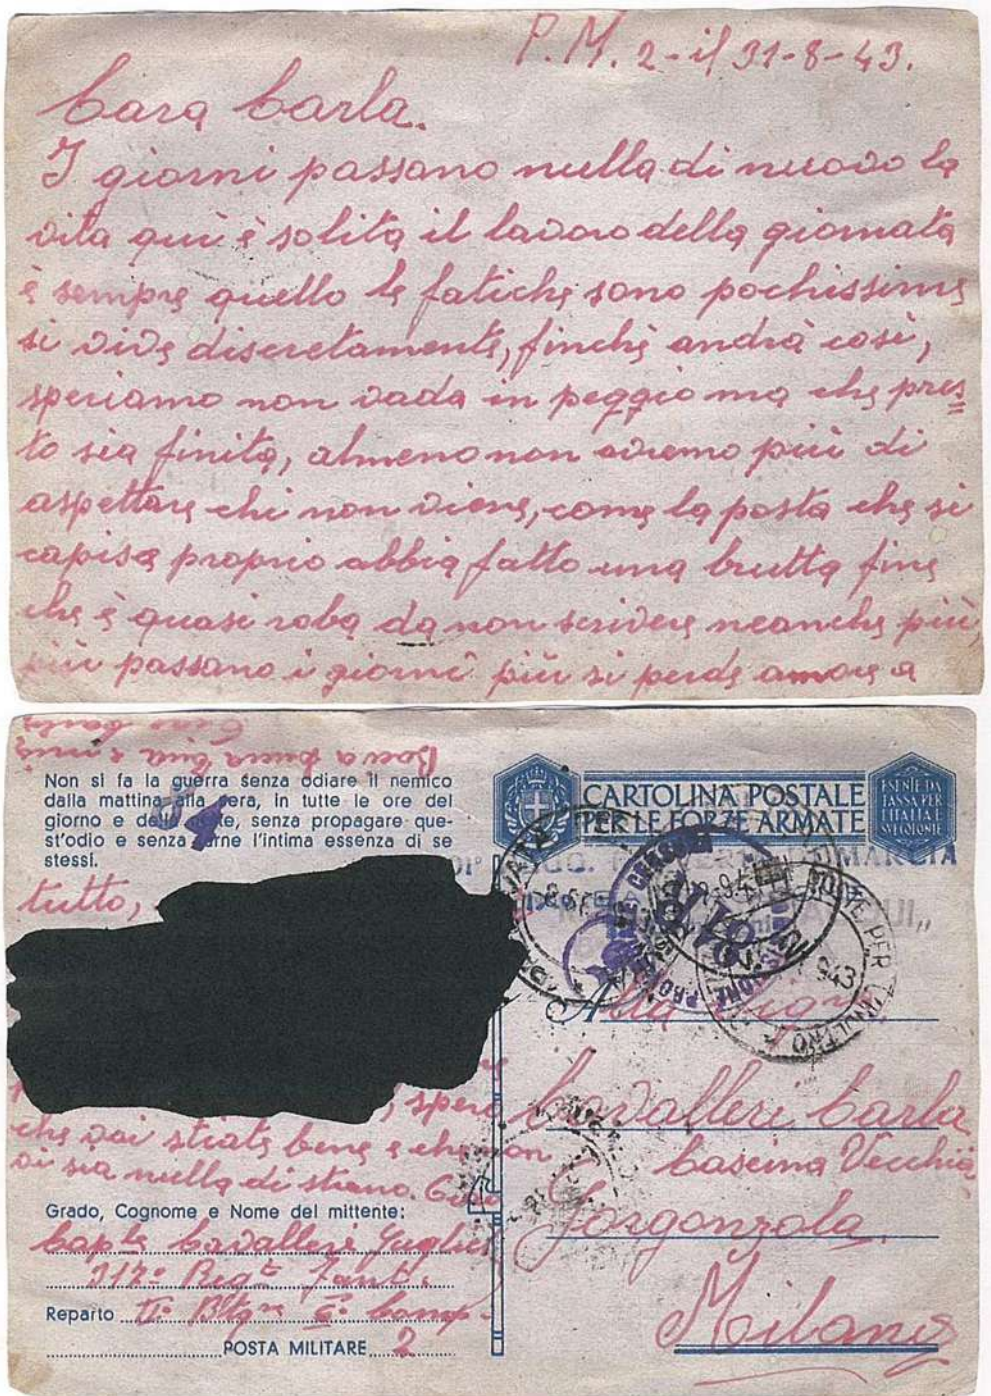 P.M. 2-il 31-8-43.
Cara Carla.
I giorni passano nulla di nuovo la
vita qui è solita il lavoro della giornata
è sempre quello le fatiche sono pochissime
si vive discretamente, finchè andrà così,
speriamo non vada in peggio ma che pres=
to sia finita, almeno non avremo più di
aspettare chi non viene, come la posta che si
capisce proprio abbia fatto una brutta fine
che è quasi roba da non scrivere neanche più,
più passano i giorni più si perde amore a
Non si fa la guerra senza odiare il nemico
dalla mattina alla sera, in tutte le ore del
giorno e della notte, senza propagare que-
st'odio e senza farne l'intima essenza di se
stessi.
tutto,
, spero
che voi stiate bene e che non
vi sia nulla di strano. Ciao
Grado, Cognome e Nome del mittente:
Cap.le Cavalleri
317° Regt Fant.
Reparto II° Btg.
Comp.
POSTA MILITARE 2
CARTOLINA POSTALE
PER LE FORZE ARMATE
ESENTE DA
TASSA PER
L'ITALIA E
SUE COLONIE
MARCIA
Alla Sign
Cavalleri Carla
Cascina Vecchia
Gorgonzola.
Milano